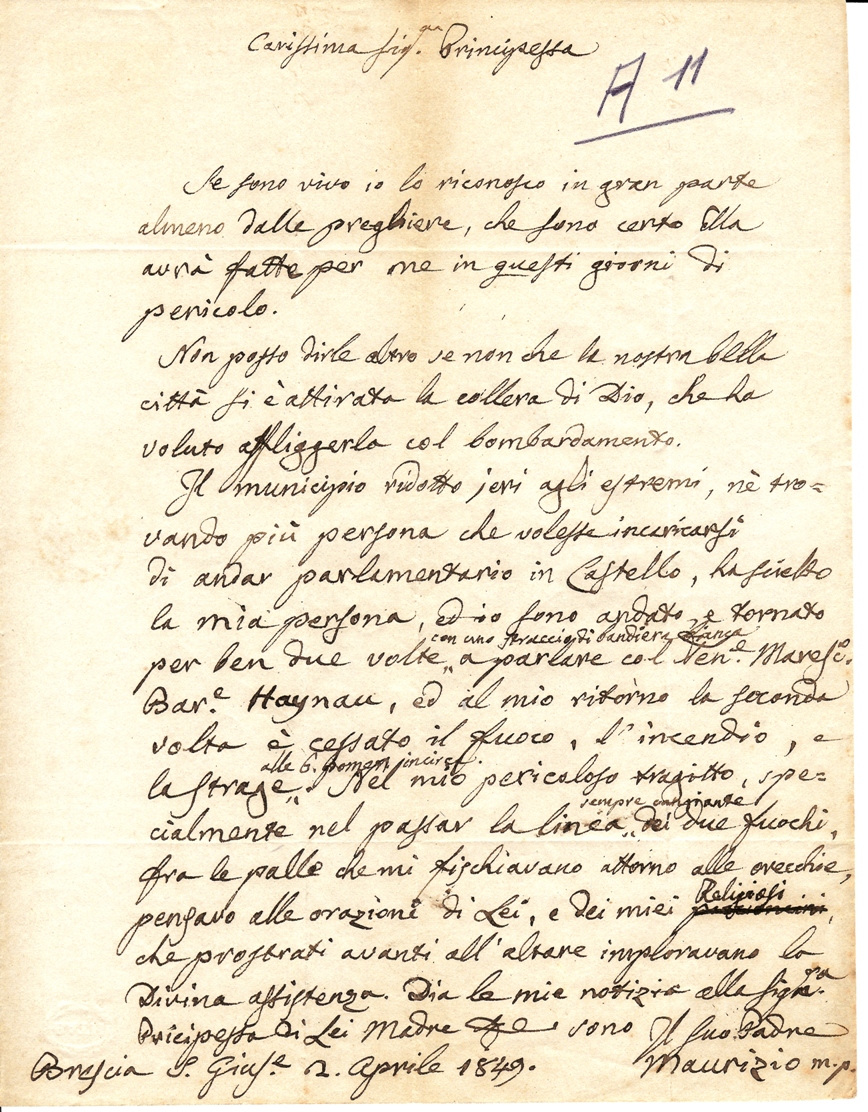 Carissima Sig.ra Principessa
A 11
Se sono vivo io lo riconosco in gran parte
almeno dalle preghiere, che sono certo Ella
avrà fatte per me in questi giorni di
pericolo.
Non posso dirle altro se non che la nostra bella
città si è attirata la collera di Dio, che ha
voluto affliggerla col bombardamento.
Il municipio ridotto jeri agli estremi, nè tro=
vando più persona che volesse incaricarsi
di andar parlamentario in Castello, ha scielto
la mia persona, ed io sono andato e tornato
con uno straccio di bandiera bianca
per ben due volte „ a parlare col Ten.e Maresc.o
Bar.e Haynau, ed al mio ritorno la seconda
volta è cessato il fuoco, l'incendio, e
alle 6. pomer. incirca.
la strage „. Nel mio pericoloso tragitto, spe=
sempre cangiante
cialmente nel passar la linea „ dei due fuochi,
fra le palle che mi fischiavano attorno alle orecchie,
Religiosi
pensavo alle orazioni di Lei, e dei miei
che prostrati avanti all'altare imploravano la
Divina assistenza. Dia le mie notizie alla Sign.ra
Pricipessa di Lei Madre &e sono Il suo Padre
Brescia S. Gius.e 2. Aprile 1849. Maurizio m.p.